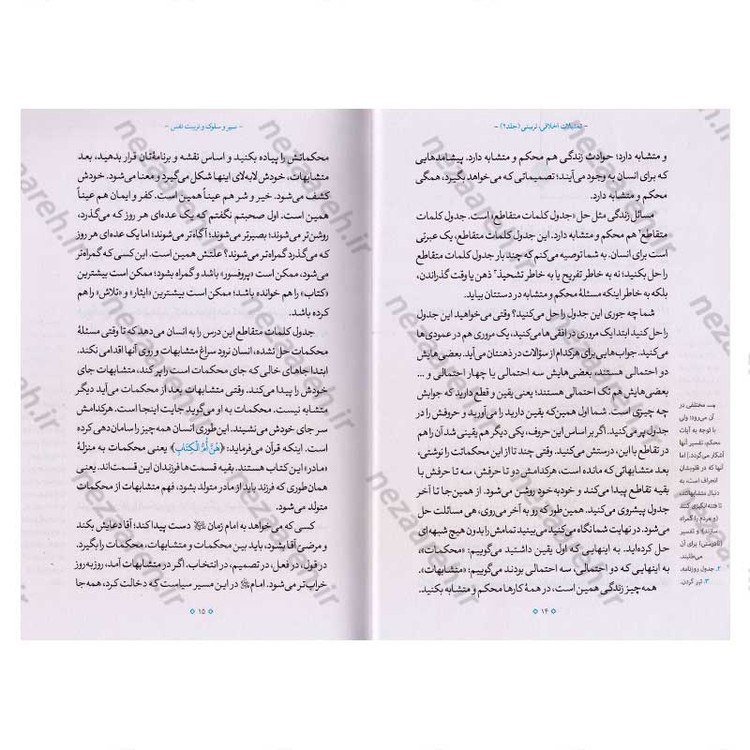 - تمثیلات اخلاقی، تربیتی (جلد۲) -
و متشابه دارد؛ حوادث زندگی هم محکم و متشابه دارد. پیشامدهایی
که برای انسان به وجود می‌آیند؛ تصمیماتی که می‌خواهد بگیرد، همگی
محکم و متشابه دارد.
مسائل زندگی مثل حل «جدول کلمات متقاطع» است. جدول کلمات
متقاطع۲ هم محکم و متشابه دارد. این جدول کلمات متقاطع، یک عبرتی
است برای انسان. به شما توصیه می‌کنم که چند بار جدول کلمات متقاطع
را حل بکنید؛ نه به خاطر تفریح یا به خاطر تشحیذ۳ ذهن یا وقت گذراندن،
بلکه به خاطر اینکه مسئلهٔ محکم و متشابه در دستتان بیاید.
شما چه جوری این جدول را حل می‌کنید؟ وقتی می‌خواهید این جدول
را حل کنید ابتدا یک مروری در افقی‌ها می‌کنید، یک مروری هم در عمودی‌ها
می‌کنید. جواب‌هایی برای هرکدام از سؤالات در ذهنتان می‌آید. بعضی‌هایش
دو احتمالی هستند، بعضی‌هایش سه احتمالی یا چهار احتمالی و ...
بعضی‌هایش هم تک احتمالی هستند؛ یعنی یقین و قطع دارید که جوابش
چه چیزی است. شما اول همین‌که یقین دارید را می‌آورید و حروفش را در
جدول پر می‌کنید. اگر بر اساس این حروف، یکی دیگر هم یقینی شد آن را هم
در تقاطع با این، درستش می‌کنید. وقتی چند تا از این محکمات را نوشتی،
بعد متشابهاتی که مانده است، هرکدامش دو تا حرفش، سه تا حرفش با
بقیه تقاطع پیدا می‌کند و خودبه‌خود روشن می‌شود. از همین‌جا تا آخر
جدول پیشروی می‌کنید. همین‌طور که رو به آخر می‌روی، هی مسائلت حل
می‌شود. در نهایت شما نگاه می‌کنید می‌بینید تمامش را بدون هیچ شبهه‌ای
حل کرده‌اید. به اینهایی که اول یقین داشتید می‌گوییم: «محکمات»،
به اینهایی که دو احتمالی، سه احتمالی بودند می‌گوییم: «متشابهات».
همه‌چیز زندگی همین است، در همهٔ کارها محکم و متشابه بکنید.
مختلفی در
آن می‌رود؛ ولی
با توجه به آیات
محکم، تفسیر آنها
آشکار می‌گردد.] اما
آنها که در قلوبشان
انحراف است، به
دنبال متشابهاتند،
تا فتنه‌انگیزی کنند
(و مردم را گمراه
سازند)؛ و تفسیر
(نادرستی) برای آن
می‌طلبند.
۲. جدول روزنامه.
۳. تیز کردن.
۱۴
- سیر و سلوک و تربیت نفس -
محکماتش را پیاده بکنید و اساس نقشه و برنامه‌تان قرار بدهید، بعد
متشابهات، خودش لابه‌لای اینها شکل می‌گیرد و معنا می‌شود. خودش
کشف می‌شود. خیر و شر هم عیناً همین است. کفر و ایمان هم عیناً
همین است. اول صحبتم نگفتم که یک عده‌ای هر روز که می‌گذرد،
روشن‌تر می‌شوند؛ بصیرتر می‌شوند؛ آگاه‌تر می‌شوند؛ اما یک عده‌ای هر روز
که می‌گذرد گمراه‌تر می‌شوند؟ علتش همین است. این کسی که گمراه‌تر
می‌شود، ممکن است «پروفسور» باشد و گمراه بشود؛ ممکن است بیشترین
«کتاب» را هم خوانده باشد؛ ممکن است بیشترین «ایثار» و «تلاش» را هم
کرده باشد.
جدول کلمات متقاطع این درس را به انسان می‌دهد که تا وقتی مسئلهٔ
محکمات حل نشده، انسان نرود سراغ متشابهات و روی آنها اقدامی نکند.
ابتدا جاهای خالی که جای محکمات است را پر کند، متشابهات جای
خودش را پیدا می‌کند. وقتی متشابهات بعد از محکمات می‌آید دیگر
متشابه نیست. محکمات به او می‌گوید جایت اینجا است. هرکدامش
سر جای خودش می‌نشیند. این‌طوری انسان همه‌چیز را سامان‌دهی کرده
است. اینکه قرآن می‌فرماید: ﴿هُنَّ أُمُّ الْكِتابِ﴾ یعنی محکمات به منزلهٔ
«مادر» این کتاب هستند. بقیه قسمت‌ها فرزندان این قسمت‌اند. یعنی
همان‌طوری که فرزند باید از مادر متولد بشود، فهم متشابهات از محکمات
متولد می‌شود.
کسی که می‌خواهد به امام زمان دست پیدا کند؛ آقا دعایش بکند
و مرضیّ آقا بشود، باید بین محکمات و متشابهات، محکمات را بگیرد.
در قول، در فعل، در تصمیم، در انتخاب. اگر در متشابهات آمد، روزبه‌روز
خراب‌تر می‌شود. امام در این مسیر سیاست که دخالت کرد، همه‌جا
۱۵
nezaareh.ir